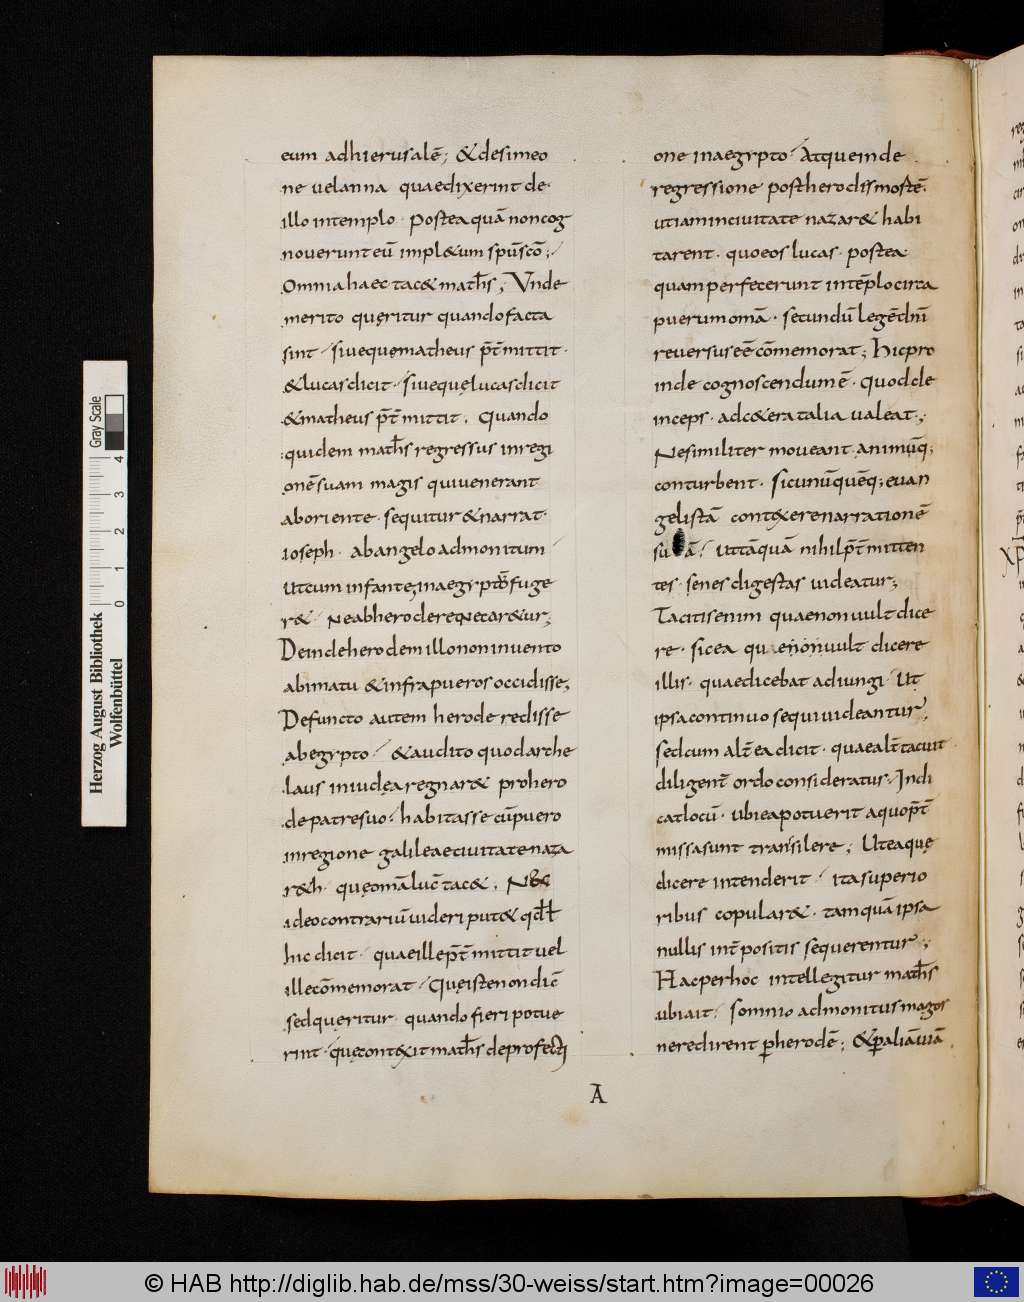 eum adhierusalē; & desimeo
ne uelanna quaedixerint de
illo intemplo. Posteaquā noncog
nouerunt eū impl&um spūscō;
Omnia haec tac& math̄s; Unde
merito quęritur quandofacta
sint siuequęmatheus p̄t̄mittit.
& lucasdicit. siuequęlucasdicit
& matheus p̄t̄mittit. Quando
quidem math̄s regressus inregi
onē suam magis quiuenerant
aboriente. sequitur & narrat.
ioseph. abangelo admonitum
utcum infante, inaegyptū fuge
r& Neabherode reNecar&ur;
Deinde herodem illonon inuento
abimatu & infrapueros occidisse;
Defuncto autem herode redisse
abegypto & audito quodarche
laus iniudęa regnar& prohero
de patresuo. habitasse cūpuero
inregione galileaeciuitatenaza
r&h. quęomā luc̄ tac&. Nec
ideo contrariū uideri put& qd̄
hic dicit. quaeille p̄t̄mittit uel
ille cōmemorat. Quęistenon dic̄
sedquęritur. quando fieri potue
rint. quęcont&xit math̄s deprofecti
one inaegypto. Atqueinde
regressione postherodismortē.
utiam inciuitate nazar& habi
tarent. quoeos lucas. postea
quam perfecerunt intēplocirca
puerumomā. secundū legēdn̄i
reuersus eē cōmemorat; Hicpro
inde cognoscendum ē. quodde
inceps. adc&era talia ualeat;
Nesimiliter moueant animūq;
conturbent. sicunūquēq; euan
gelistā cont&xere narrationē
suā. uttāquā nihil p̄t̄mitten
tes. senes digestas uideatur;
Tacitisenim quaenonuult dice
re. sicea quaenonuult dicere
illis. quaedicebat adiungi. Ut
ipsacontinuo sequiuideantur,
sedcum alt̄ ea dicit. quaealt̄ tacuit
diligent̄ ordo consideratus. Indi
catlocū. ubieapotuerit aquop̄t̄
missasunt transilere; Uteaquę
dicere intenderit. itasuperio
ribus copular&. tamquā ipsa
nullis int̄positis sequerentur;
Hacperhoc intellegitur math̄s
ubiait. somnio admonitus magos
neredirent perherodē; & peraliāuiā
A
Herzog August Bibliothek
Wolfenbüttel
0 1 2 3 4
Gray Scale
© HAB http://diglib.hab.de/mss/30-weiss/start.htm?image=00026